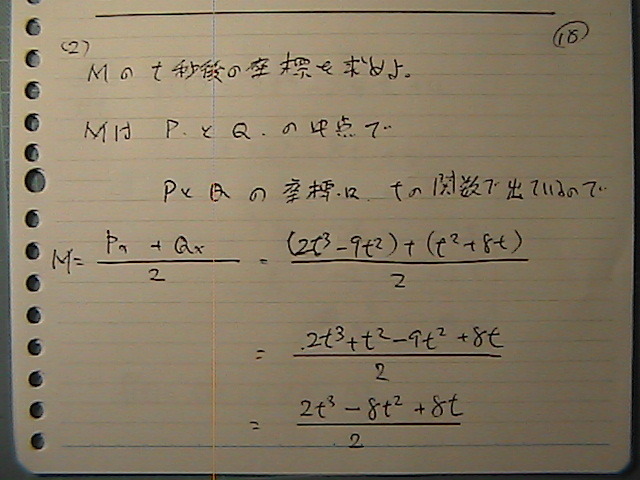 (2) 18
Mのt秒後の座標を求めよ。
Mは PとQ の中点で
PとQ の座標は tの関数で出ているので
M= (Px + Qx)/2 = ((2t³-9t²)+(t²+8t))/2
= (2t³+t²-9t²+8t)/2
= (2t³-8t²+8t)/2